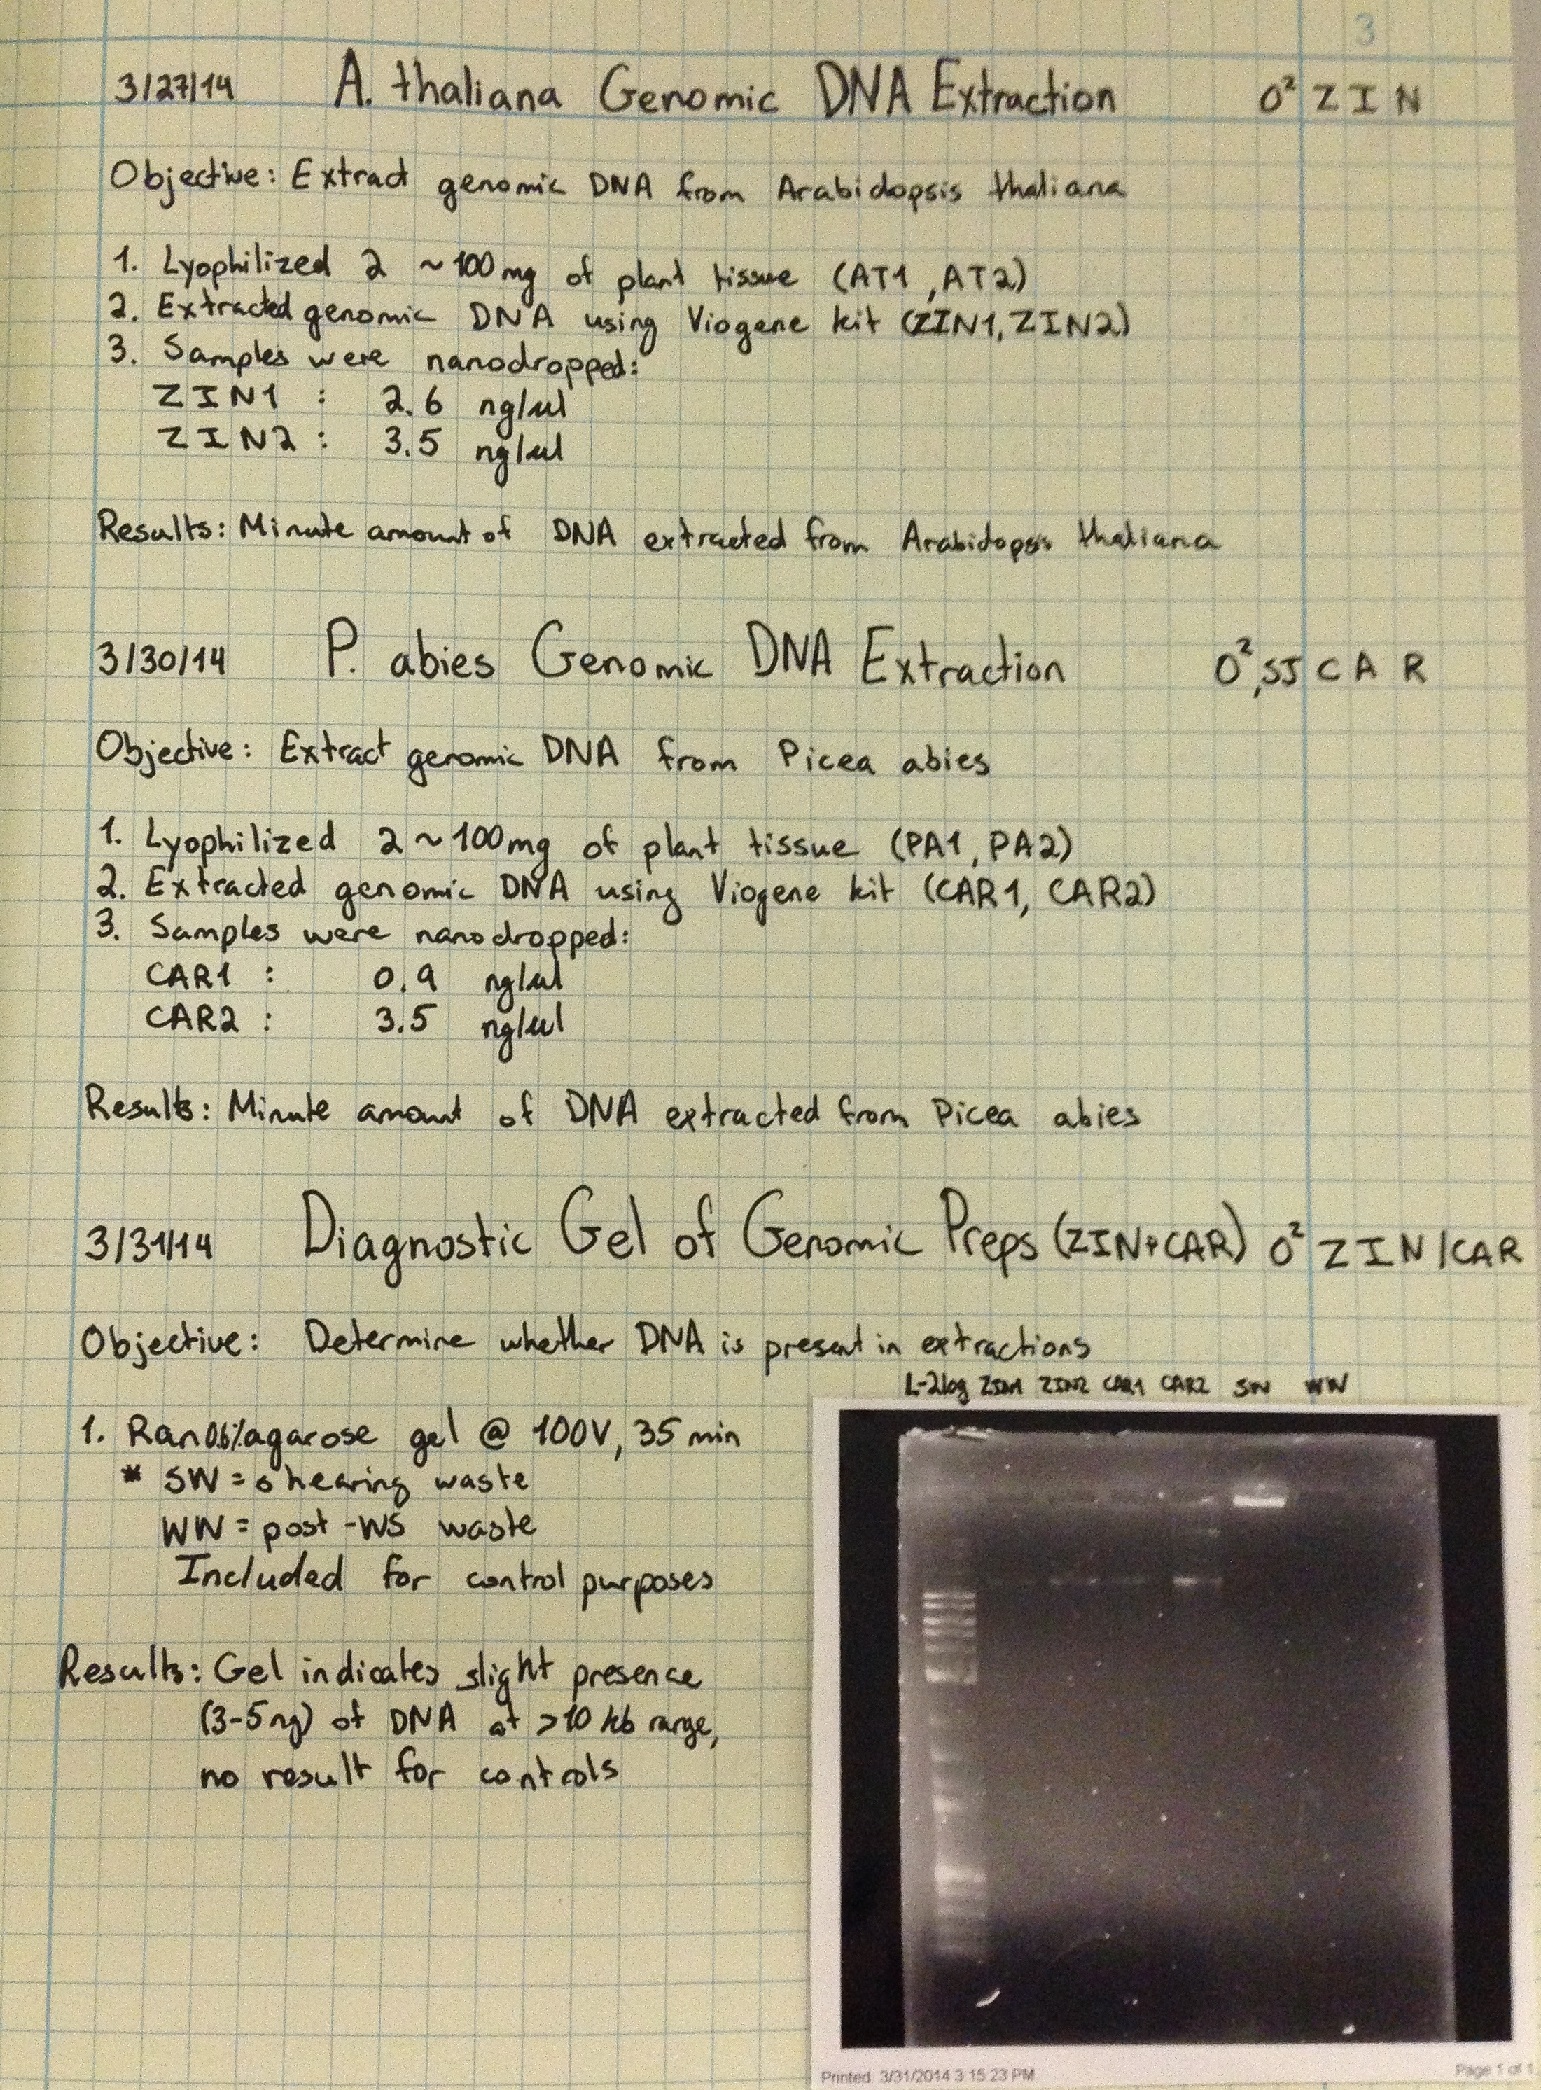 3
3/27/14 A. thaliana Genomic DNA Extraction O² ZIN
Objective: Extract genomic DNA from Arabidopsis thaliana
1. Lyophilized 2 ~100mg of plant tissue (AT1, AT2)
2. Extracted genomic DNA using Viogene kit (ZIN1, ZIN2)
3. Samples were nanodropped:
ZIN1 : 2.6 ng/ul
ZIN2 : 3.5 ng/ul
Results: Minute amount of DNA extracted from Arabidopsis thaliana
3/30/14 P. abies Genomic DNA Extraction O², SJ CAR
Objective: Extract genomic DNA from Picea abies
1. Lyophilized 2 ~100mg of plant tissue (PA1, PA2)
2. Extracted genomic DNA using Viogene kit (CAR1, CAR2)
3. Samples were nanodropped:
CAR1 : 0.9 ng/ul
CAR2 : 3.5 ng/ul
Results: Minute amount of DNA extracted from Picea abies
3/31/14 Diagnostic Gel of Genomic Preps (ZIN+CAR) O² ZIN/CAR
Objective: Determine whether DNA is present in extractions
L-2log ZIN1 ZIN2 CAR1 CAR2 SW WW
1. Ran 0.6% agarose gel @ 100V, 35 min
* SW = shearing waste
WW = post-WS waste
Included for control purposes
Results: Gel indicates slight presence
(3-5ng) of DNA at >10 kb range,
no result for controls
Printed: 3/31/2014 3:15:23 PM Page 1 of 1